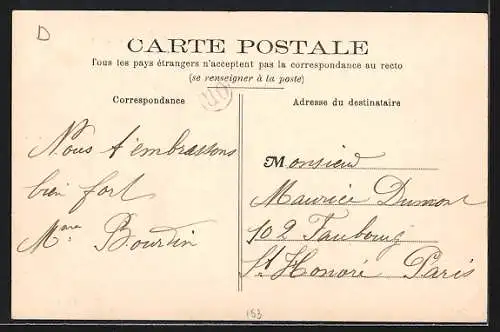 D
CARTE POSTALE
Tous les pays étrangers n'acceptent pas la correspondance au recto
(se renseigner à la poste)
Correspondance
Adresse du destinataire
Nous t'embrassons
bien fort
Mme Bourdin
Monsieur
Maurice Dumont
102 Faubourg
St Honoré Paris
153